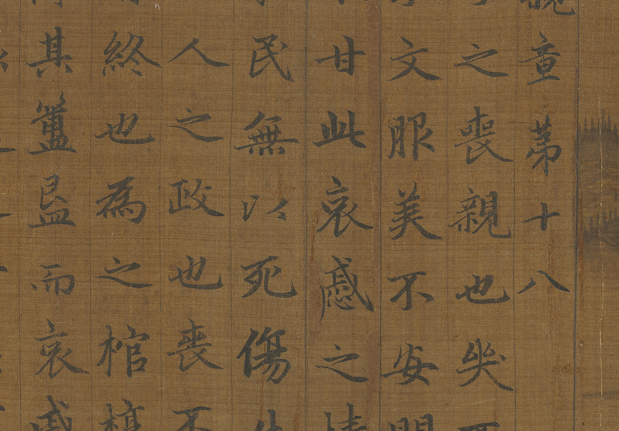 親章第十八
之喪親也哭
文服美不安聞
甘此哀慼之情
民無以死傷
人之政也喪不
終也為之棺槨
其簠簋而哀慼